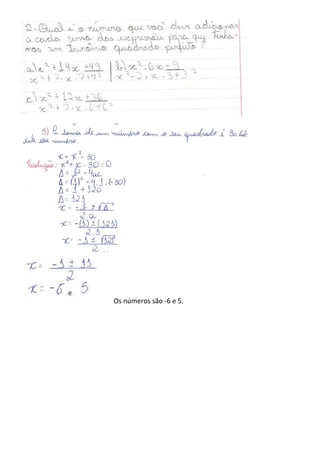 2- Qual é o número que você deve adicionar
a cada uma das expressões para que tenha-
mos um trinômio quadrado perfeito?
a) x² + 14x + 49 | b) x² - 6x + 9
x² + 2 . x . 7 + 7² | x² - 2 . x . 3 + 3²
c) x² + 12x + 36
x² + 2 . x . 6 + 6²
3) A soma de um número com o seu quadrado é 30.
este número.
x + x² = 30
Resolução: x² + x - 30 = 0
Δ = b² - 4ac
Δ = (1)² - 4 . 1 . (-30)
Δ = 1 + 120
Δ = 121
x = -b ± √Δ
2.a
x = -(1) ± (121)
2.1
x = -1 ± √121
2
x = -1 ± 11
2
x = -6 e 5
Os números são -6 e 5.